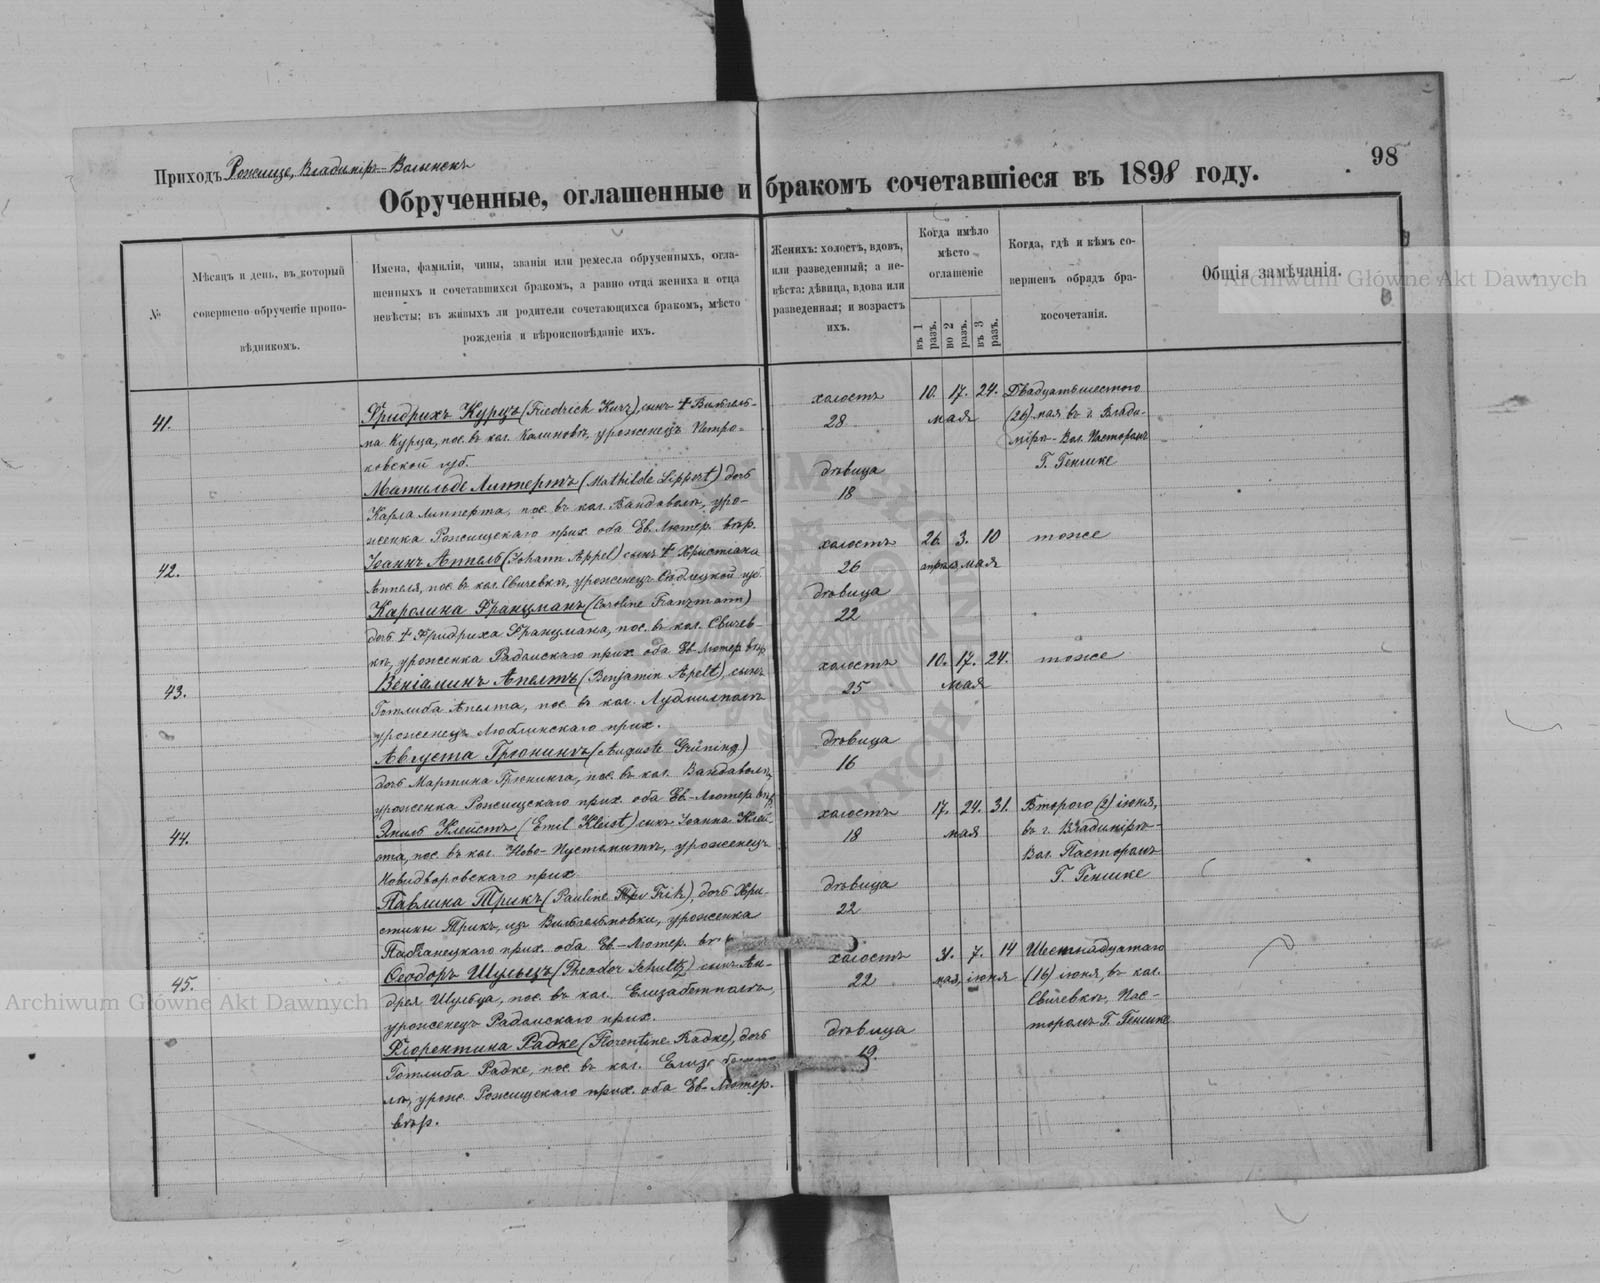 98
Приходъ Рожище, Владиміръ-Волынскъ
Обрученные, оглашенные и бракомъ сочетавшіеся въ 1898 году.
№
Мѣсяцъ и день, въ который
совершено обрученіе пропо-
вѣдникомъ.
Имена, фамиліи, чины, званія или ремесла обрученныхъ, огла-
шенныхъ и сочетавшихся бракомъ, а равно отца жениха и отца
невѣсты; въ живыхъ ли родители сочетающихся бракомъ, мѣсто
рожденія и вѣроисповѣданіе ихъ.
Женихъ: холостъ, вдовъ,
или разведенный; а не-
вѣста: дѣвица, вдова или
разведенная; и возрастъ
ихъ.
Когда имѣло
мѣсто
оглашеніе
въ 1 разъ.
во 2 разъ.
въ 3 разъ.
Когда, гдѣ и кѣмъ со-
вершенъ обрядъ бра-
косочетанія.
Общія замѣчанія.
41.
Фридрихъ Курцъ (Friedrich Kurz), сынъ † Вильгель-
ма Курца, пос. въ кол. Калиновъ, уроженецъ Петро-
ковской губ.
Матильде Липпертъ (Mathilde Lippert) дочь
Карла Липперта, пос. въ кол. Вандаволь, уро-
женка Рожищскаго прих. оба Ев. Лютер. вѣр.
холостъ
28
дѣвица
18
10. 17. 24.
мая
Двадцатьшестого
(26) мая въ г. Влади-
міръ-Вол. Пасторомъ
Г. Генике
42.
Іоаннъ Аппель (Johann Appel) сынъ † Христіана
Аппеля, пос. въ кол. Свичевкѣ, уроженецъ Сѣдлецкой губ.
Каролина Францманъ (Caroline Franzmann)
дочь † Фридриха Францмана, пос. въ кол. Свичев-
кѣ, уроженка Радомскаго прих. оба Ев. Лютер. вѣр.
холостъ
26
дѣвица
22
26. 3. 10
апрѣля, мая
тоже
43.
Веніаминъ Апелтъ (Benjamin Apelt), сынъ
Готлиба Апелта, пос. въ кол. Лудмилполь
уроженецъ Люблинскаго прих.
Августа Грюнингъ (Auguste Grüning)
дочь Мартина Грюнинга, пос. въ кол. Вандаволѣ,
уроженка Рожищскаго прих. оба Ев.-Лютер. вѣр.
холостъ
25
дѣвица
16
10. 17. 24.
мая
тоже
44.
Эмиль Клейстъ (Emil Kleist) сынъ Іоанна Клей-
ста, пос. въ кол. Ново-Пустомитъ, уроженецъ
Новидворовскаго прих.
Павлина Трикъ (Pauline Trik), дочь Хри-
стины Трикъ, изъ Вильгельмовки, уроженка
Пабіанецкаго прих. оба Ев.-Лютер.
холостъ
18
дѣвица
22
17. 24. 31.
мая
Второго (2) іюня,
въ г. Владиміръ-
Вол. Пасторомъ
Г. Генике
45.
Ѳеодоръ Шульцъ (Theodor Schultz) сынъ Ан-
дрея Шульца, пос. въ кол. Елизабетполь,
уроженецъ Радомскаго прих.
Флорентина Радке (Florentine Radke), дочь
Готлиба Радке, пос. въ кол. Елизабетпо-
лѣ, урож. Рожищскаго прих. оба Ев. Лютер.
вѣр.
холостъ
22
дѣвица
19.
31. 7. 14
мая, іюня
Шестнадцатаго
(16) іюня, въ кол.
Свичевкѣ, Пас-
торомъ Г. Генике
Archiwum Główne Akt Dawnych
Archiwum Główne Akt Dawnych